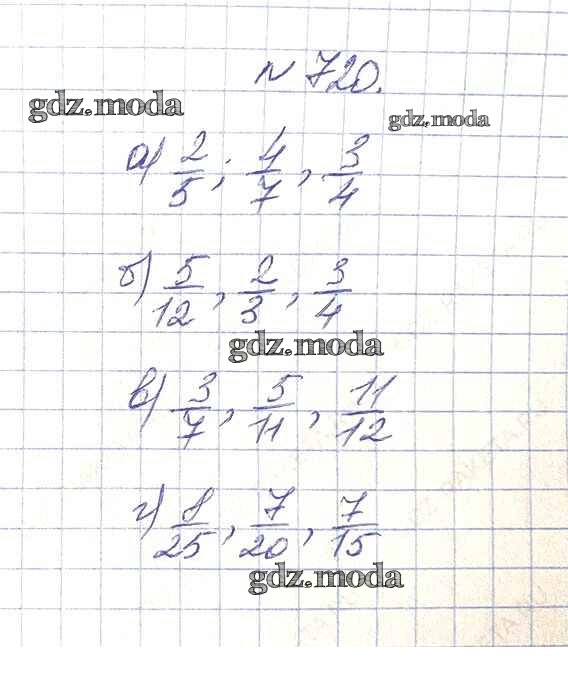 № 720.
gdz.moda
gdz.moda
а) 2/5; 4/7, 3/4
б) 5/12, 2/3, 3/4
gdz.moda
в) 3/7, 5/11, 11/12
г) 8/25, 7/20, 7/15
gdz.moda